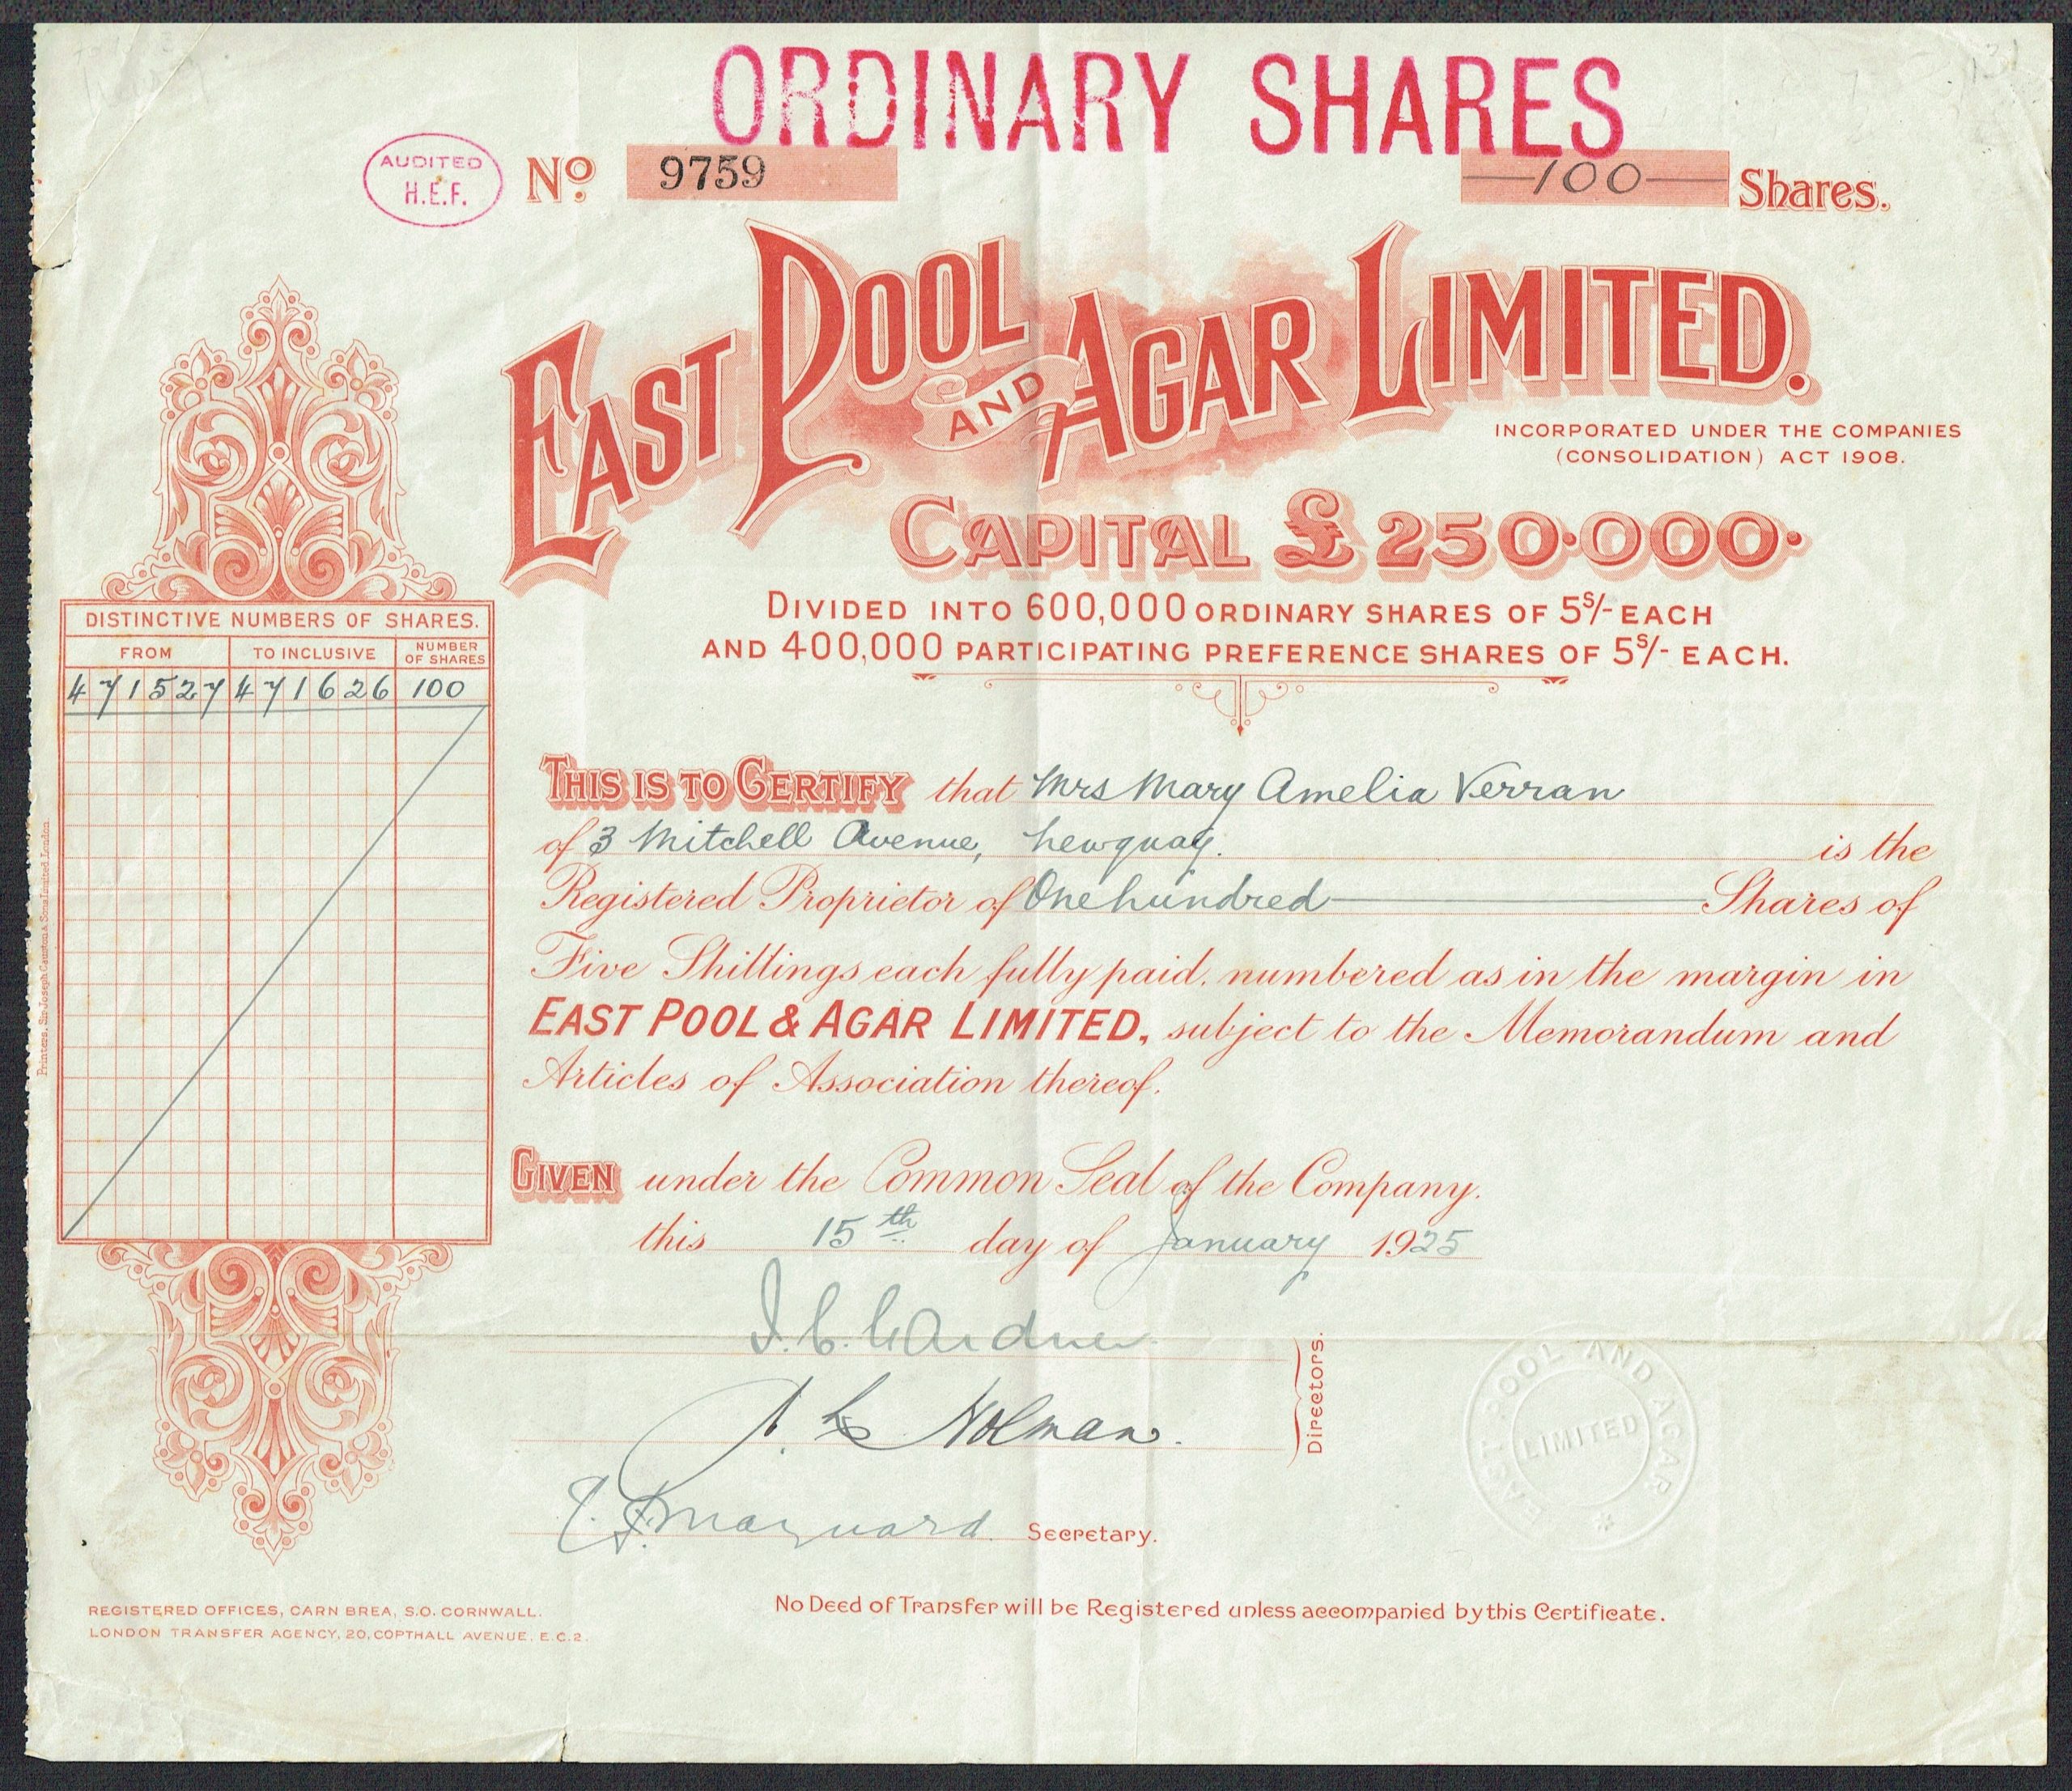 ORDINARY SHARES
AUDITED
H.E.F.
No. 9759
—100— Shares.
EAST POOL AND AGAR LIMITED.
INCORPORATED UNDER THE COMPANIES
(CONSOLIDATION) ACT 1908.
CAPITAL £250.000.
DIVIDED INTO 600,000 ORDINARY SHARES OF 5S/- EACH
AND 400,000 PARTICIPATING PREFERENCE SHARES OF 5S/- EACH.
DISTINCTIVE NUMBERS OF SHARES.
FROM TO INCLUSIVE NUMBER OF SHARES
471527 471626 100
THIS IS TO CERTIFY that Mrs Mary Amelia Verran
of 3 Mitchell Avenue, Newquay. is the
Registered Proprietor of One hundred Shares of
Five Shillings each fully paid, numbered as in the margin in
EAST POOL & AGAR LIMITED, subject to the Memorandum and
Articles of Association thereof.
GIVEN under the Common Seal of the Company.
this 15th day of January 1925
Gardner
Holman.
Directors.
Maynard Secretary.
EAST POOL AND AGAR
LIMITED
No Deed of Transfer will be Registered unless accompanied by this Certificate.
REGISTERED OFFICES, CARN BREA, S.O. CORNWALL.
LONDON TRANSFER AGENCY, 20, COPTHALL AVENUE, E.C.2.
Printers, Sir Joseph Causton & Sons Limited, London